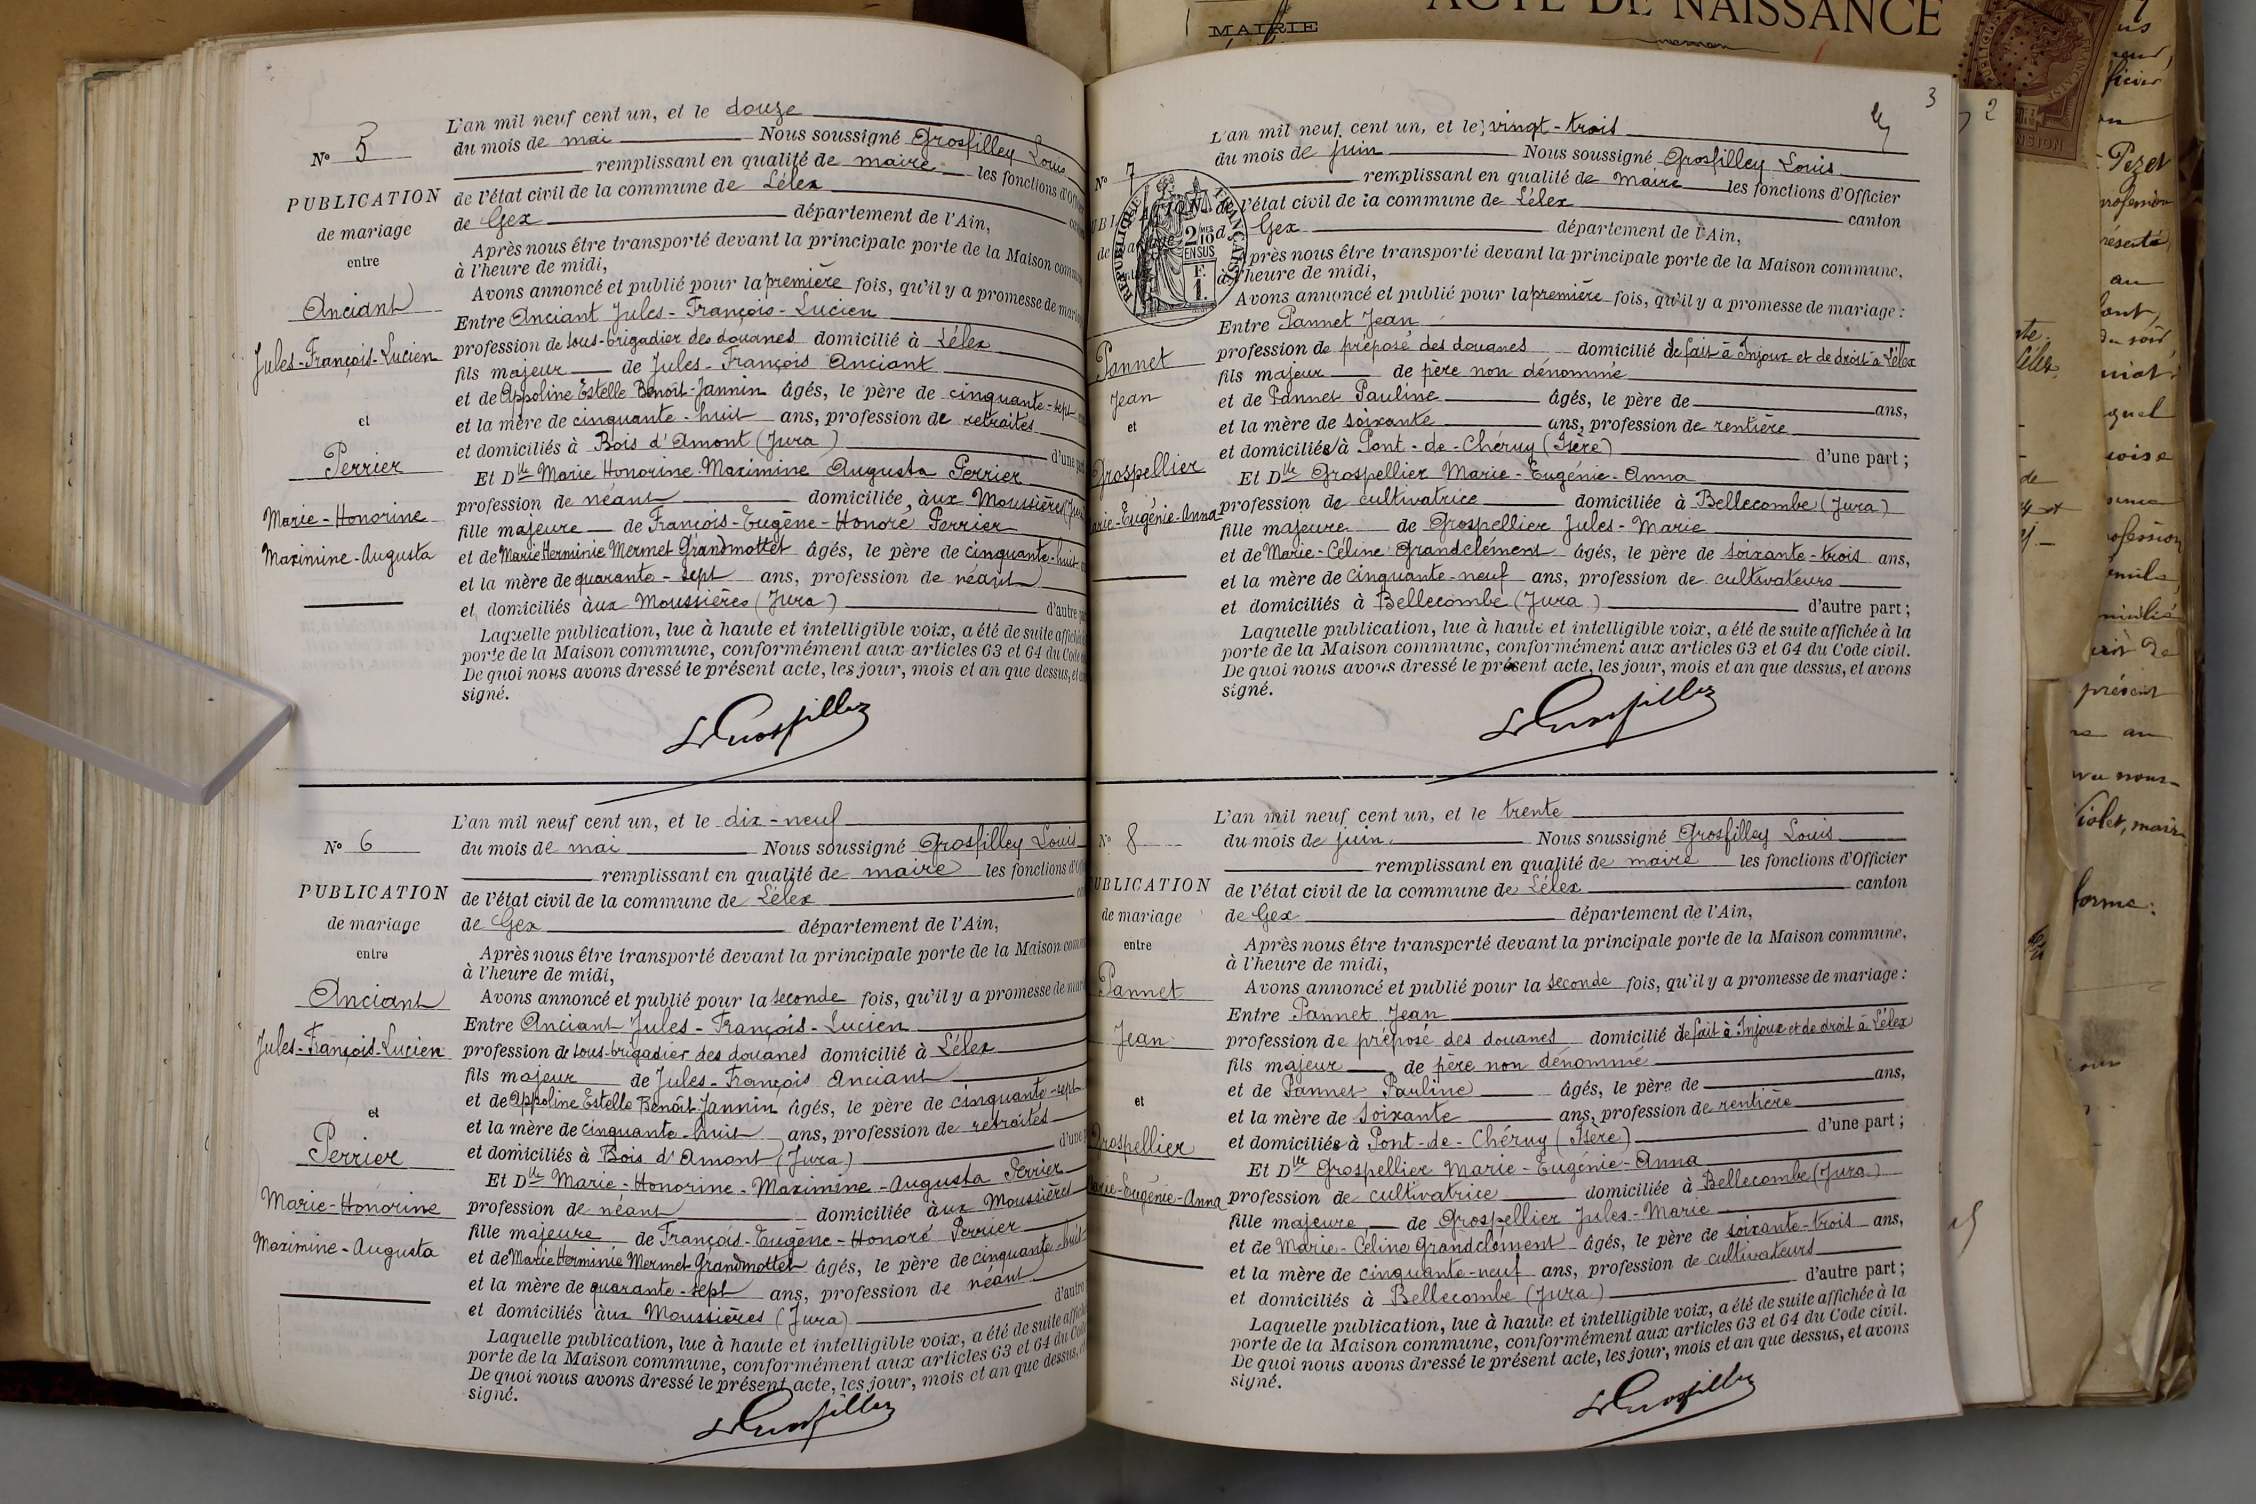 N° 5
PUBLICATION
de mariage
entre
Anciant
Jules-François-Lucien
et
Perrier
Marie-Honorine
Maximine-Augusta
L'an mil neuf cent un, et le douze
du mois de mai Nous soussigné Grosfilley Louis
remplissant en qualité de maire les fonctions d'Officier
de l'état civil de la commune de Lélex
de Gex département de l'Ain,
Après nous être transporté devant la principale porte de la Maison commune
à l'heure de midi,
Avons annoncé et publié pour la première fois, qu'il y a promesse de mariage
Entre Anciant Jules-François-Lucien
profession de sous-brigadier des douanes domicilié à Lélex
fils majeur de Jules-François Anciant
et de Appoline Estelle Benoît-Jannin âgés, le père de cinquante-sept
et la mère de cinquante-huit ans, profession de retraités
et domiciliés à Bois d'Amont (Jura) d'une part
Et Dlle Marie Honorine Maximine Augusta Perrier
profession de néant domiciliée aux Moussières (Jura
fille majeure de François-Eugène-Honoré Perrier
et de Marie Herminie Mermet Grandmottet âgés, le père de cinquante-huit
et la mère de quarante-sept ans, profession de néant
et domiciliés aux Moussières (Jura) d'autre part
Laquelle publication, lue à haute et intelligible voix, a été de suite affichée
porte de la Maison commune, conformément aux articles 63 et 64 du Code
De quoi nous avons dressé le présent acte, les jour, mois et an que dessus, et
signé.
L Grosfilley
N° 6
PUBLICATION
de mariage
entre
Anciant
Jules-François-Lucien
et
Perrier
Marie-Honorine
Maximine-Augusta
L'an mil neuf cent un, et le dix-neuf
du mois de mai Nous soussigné Grosfilley Louis
remplissant en qualité de maire les fonctions d'Off
de l'état civil de la commune de Lélex
de Gex département de l'Ain,
Après nous être transporté devant la principale porte de la Maison comm
à l'heure de midi,
Avons annoncé et publié pour la seconde fois, qu'il y a promesse de mar
Entre Anciant Jules-François-Lucien
profession de sous-brigadier des douanes domicilié à Lélex
fils majeur de Jules-François Anciant
et de Appoline Estelle Benoît-Jannin âgés, le père de cinquante-sept
et la mère de cinquante-huit ans, profession de retraités
et domiciliés à Bois d'Amont (Jura) d'une p
Et Dlle Marie-Honorine-Maximine-Augusta Perrier
profession de néant domiciliée aux Moussières
fille majeure de François-Eugène-Honoré Perrier
et de Marie Herminie Mermet Grandmottet âgés, le père de cinquante-huit
et la mère de quarante-sept ans, profession de néant
et domiciliés aux Moussières (Jura) d'autre
Laquelle publication, lue à haute et intelligible voix, a été de suite affiché
porte de la Maison commune, conformément aux articles 63 et 64 du Code
De quoi nous avons dressé le présent acte, les jour, mois et an que dessus,
signé.
L Grosfilley
MAIRIE
ACTE DE NAISSANCE
3
2
N° 7
de mariage
Pannet
Jean
et
Grospellier
Marie-Eugénie-Anna
RÉPUBLIQUE FRANÇAISE
2 10 MES
EN SUS
F.
1.
L'an mil neuf cent un, et le vingt-trois
du mois de juin Nous soussigné Grosfilley Louis
remplissant en qualité de maire les fonctions d'Officier
de l'état civil de la commune de Lélex canton
d Gex département de l'Ain,
Après nous être transporté devant la principale porte de la Maison commune,
à l'heure de midi,
Avons annoncé et publié pour la première fois, qu'il y a promesse de mariage :
Entre Pannet Jean
profession de préposé des douanes domicilié de fait à Injoux et de droit à Lélex
fils majeur de père non dénommé
et de Pannet Pauline âgés, le père de ans,
et la mère de soixante ans, profession de rentière
et domiciliés à Pont-de-Chéruy (Isère) d'une part ;
Et Dlle Grospellier Marie-Eugénie-Anna
profession de cultivatrice domiciliée à Bellecombe (Jura)
fille majeure de Grospellier Jules-Marie
et de Marie-Céline Grandclément âgés, le père de soixante-trois ans,
et la mère de cinquante-neuf ans, profession de cultivateurs
et domiciliés à Bellecombe (Jura) d'autre part ;
Laquelle publication, lue à haute et intelligible voix, a été de suite affichée à la
porte de la Maison commune, conformément aux articles 63 et 64 du Code civil.
De quoi nous avons dressé le présent acte, les jour, mois et an que dessus, et avons
signé.
L Grosfilley
N° 8
PUBLICATION
de mariage
entre
Pannet
Jean
et
Grospellier
Marie-Eugénie-Anna
L'an mil neuf cent un, et le trente
du mois de juin Nous soussigné Grosfilley Louis
remplissant en qualité de maire les fonctions d'Officier
de l'état civil de la commune de Lélex canton
de Gex département de l'Ain,
Après nous être transporté devant la principale porte de la Maison commune,
à l'heure de midi,
Avons annoncé et publié pour la seconde fois, qu'il y a promesse de mariage :
Entre Pannet Jean
profession de préposé des douanes domicilié de fait à Injoux et de droit à Lélex
fils majeur de père non dénommé
et de Pannet Pauline âgés, le père de ans,
et la mère de soixante ans, profession de rentière
et domiciliés à Pont-de-Chéruy (Isère) d'une part ;
Et Dlle Grospellier Marie-Eugénie-Anna
profession de cultivatrice domiciliée à Bellecombe (Jura)
fille majeure de Grospellier Jules-Marie
et de Marie-Céline Grandclément âgés, le père de soixante-trois ans,
et la mère de cinquante-neuf ans, profession de cultivateurs
et domiciliés à Bellecombe (Jura) d'autre part ;
Laquelle publication, lue à haute et intelligible voix, a été de suite affichée à la
porte de la Maison commune, conformément aux articles 63 et 64 du Code civil.
De quoi nous avons dressé le présent acte, les jour, mois et an que dessus, et avons
signé.
L Grosfilley
Pezet
profession
au
présent
au
Violet, maire
forme :